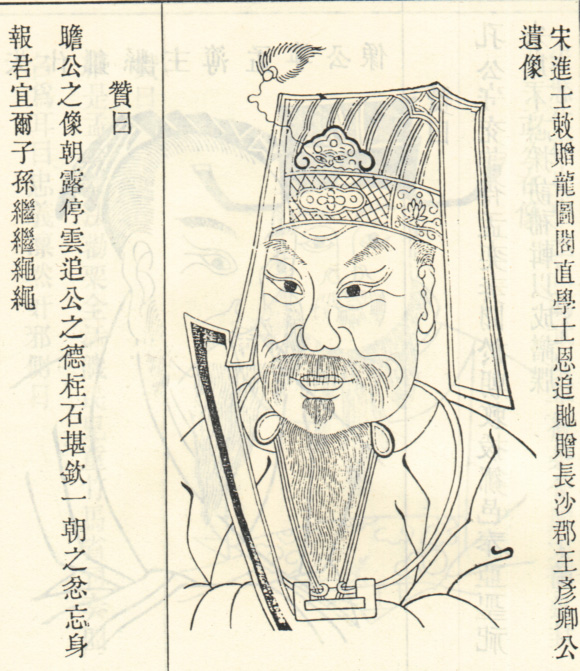 宋進士敕贈龍圖閣直學士恩追貤贈長沙郡王彥卿公
遺像
贊曰
瞻公之像朝露停雲追公之德柱石堪欽一朝之忿忘身
報君宜爾子孫繼繼繩繩